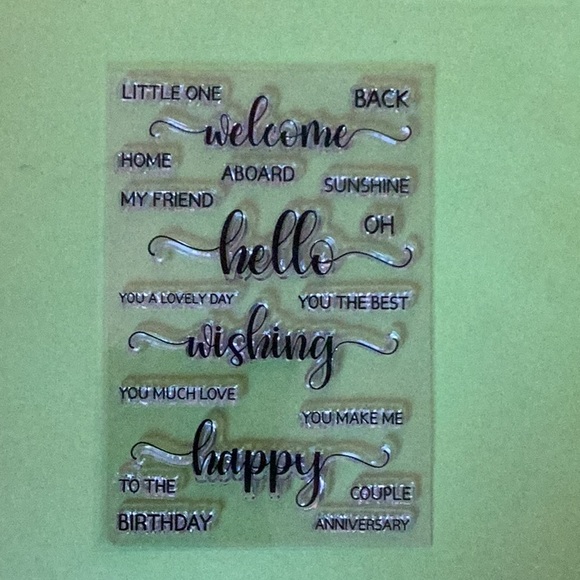 LITTLE ONE
BACK
welcome
HOME
ABOARD
SUNSHINE
MY FRIEND
OH
hello
YOU A LOVELY DAY
YOU THE BEST
wishing
YOU MUCH LOVE
YOU MAKE ME
happy
TO THE
COUPLE
BIRTHDAY
ANNIVERSARY